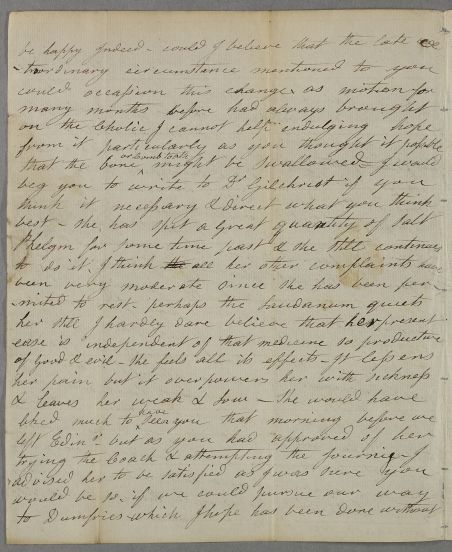 be happy indeed - could I believe that the late ex
-traordinary circumstance mentioned to you
could occasion this change as motion for
many months before had always brought
on the Cholic I cannot help indulging hope
from it particularly as you thought it possible
that the bone might be swallowed - I would
beg you to write to Dr Gilchrist if you
think it necessary & direct what you think
best - she has spit a great quantity of salt
Phelgm for some time past & she still continues
to do it. I think all her other complaints have
been very moderate since she has been per
-mitted to rest - perhaps the Laudanum quiets
her still I hardly dare believe that her present
ease is independent of that medicine so productive
of Good & evil - she feels all its effects - It lessens
her pain but it overpowers her with sickness
& leaves her weak & low - She would have
liked much to have seen you that morning before we
left Edinr but as you had approved of her
trying the Coach & attempting the journey I
advised her to be satisfied as I was sure you
would be so if we could pursue our way
to Dumfries - which I hope has been done without